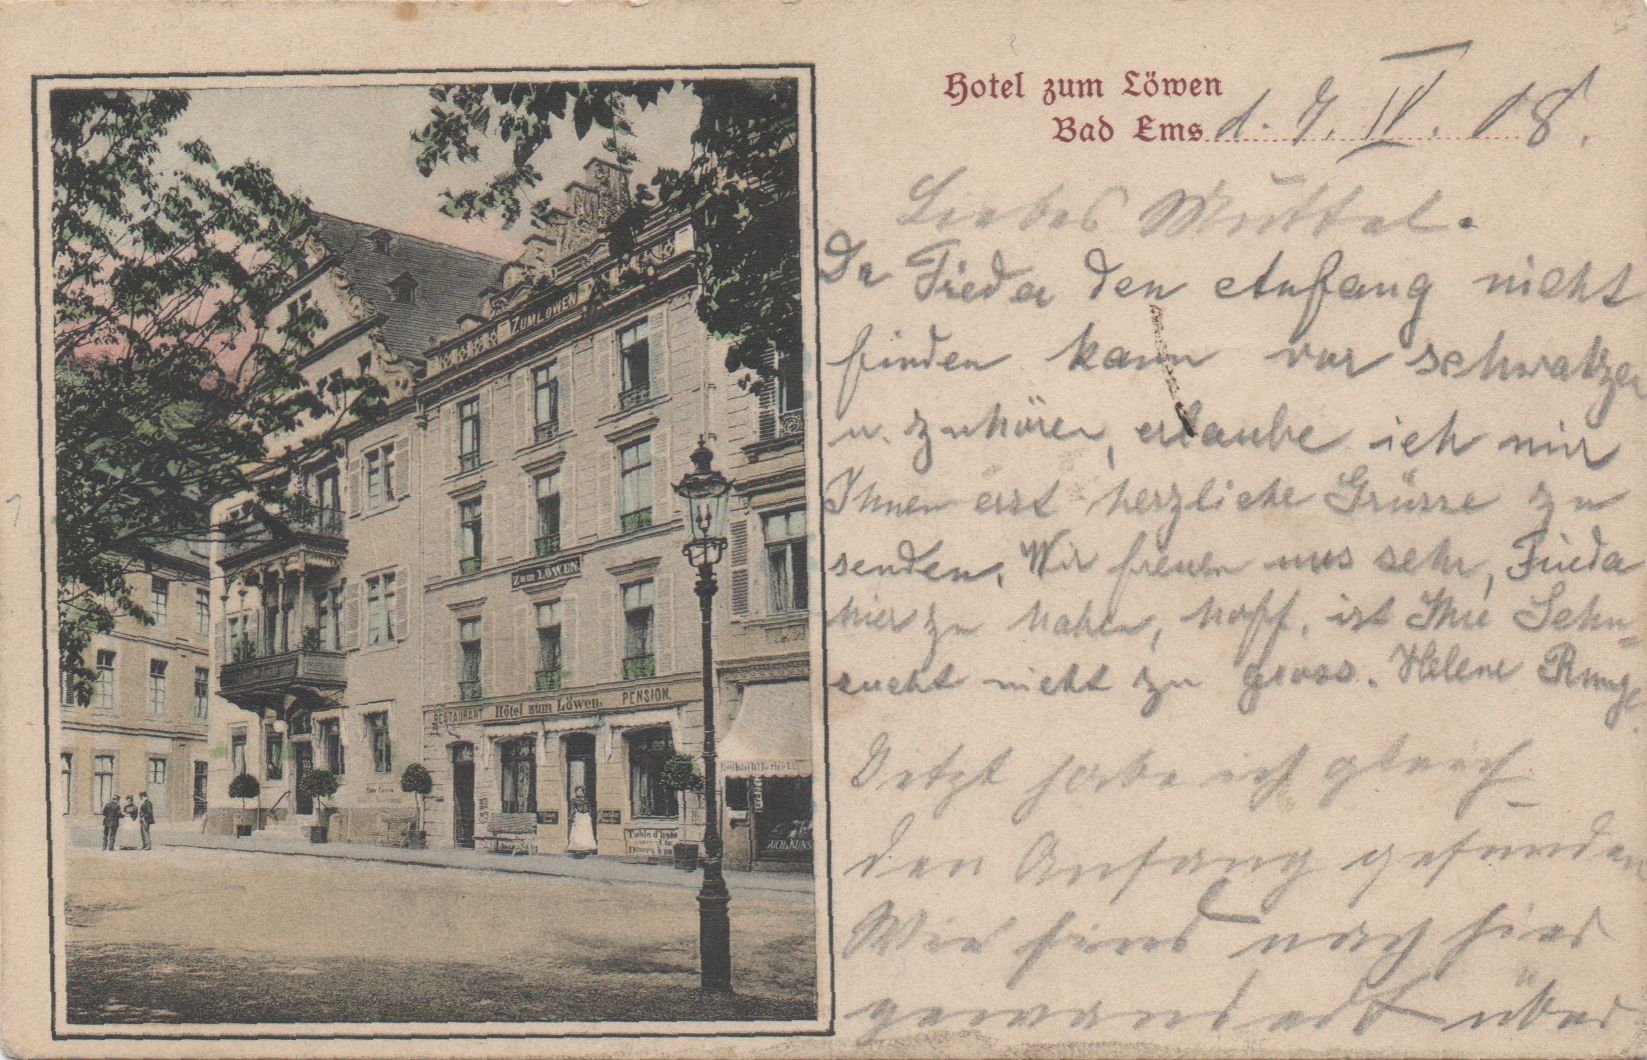 Hotel zum Löwen
Bad Ems d. 7. IV. 08.
Liebes Muttel.
Da Frieda den Anfang nicht
finden kann vor schwatzen
u. zuhören, erlaube ich mir
Ihnen erst herzliche Grüsse zu
senden. Wir freuen uns sehr, Frieda
hier zu haben, hoff. ist Ihre Sehn-
sucht nicht zu gross. Helene Runge.
Jetzt habe ich gleich
den Anfang gefunden
Wir sind nach hier
gewandert über
ZUM LÖWEN
Zum LÖWEN
RESTAURANT Hôtel zum Löwen. PENSION.
Table d'hôte